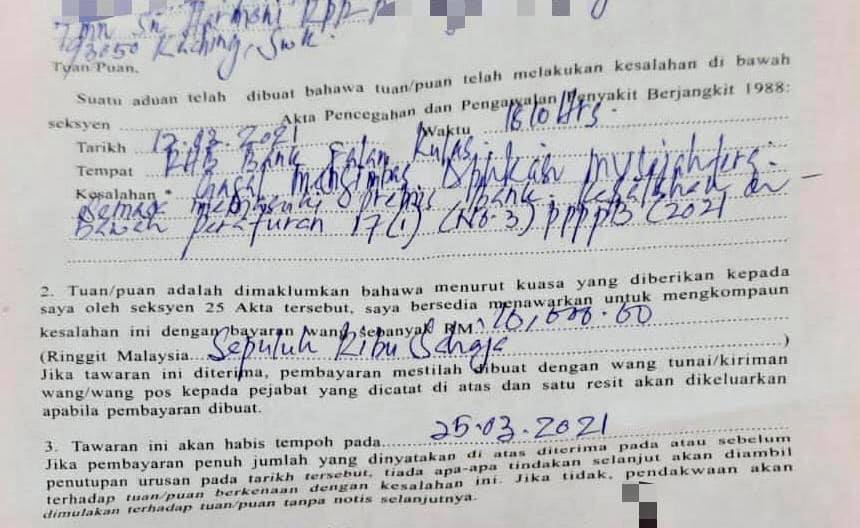 Tmn Sri Harmoni RPR
93050 Kuching, Swk.
Tuan/Puan,
Suatu aduan telah dibuat bahawa tuan/puan telah melakukan kesalahan di bawah
seksyen ............ Akta Pencegahan dan Pengawalan Penyakit Berjangkit 1988:
Tarikh 12.03.2021 Waktu 1810 Hrs.
Tempat RHB Bank Jalan Kulas.
Kesalahan * Gagal mengimbas Aplikasi Mysejahtera.
Semasa memasuki premis bank. Kesalahan di
Bawah Peraturan 17(1) (No.3) PPPPB (2021
2. Tuan/puan adalah dimaklumkan bahawa menurut kuasa yang diberikan kepada
saya oleh seksyen 25 Akta tersebut, saya bersedia menawarkan untuk mengkompaun
kesalahan ini dengan bayaran wang sebanyak RM 10,000.00
(Ringgit Malaysia Sepuluh Ribu Sahaja )
Jika tawaran ini diterima, pembayaran mestilah dibuat dengan wang tunai/kiriman
wang/wang pos kepada pejabat yang dicatat di atas dan satu resit akan dikeluarkan
apabila pembayaran dibuat.
3. Tawaran ini akan habis tempoh pada 25.03.2021
Jika pembayaran penuh jumlah yang dinyatakan di atas diterima pada atau sebelum
penutupan urusan pada tarikh tersebut, tiada apa-apa tindakan selanjut akan diambil
terhadap tuan/puan berkenaan dengan kesalahan ini. Jika tidak, pendakwaan akan
dimulakan terhadap tuan/puan tanpa notis selanjutnya.